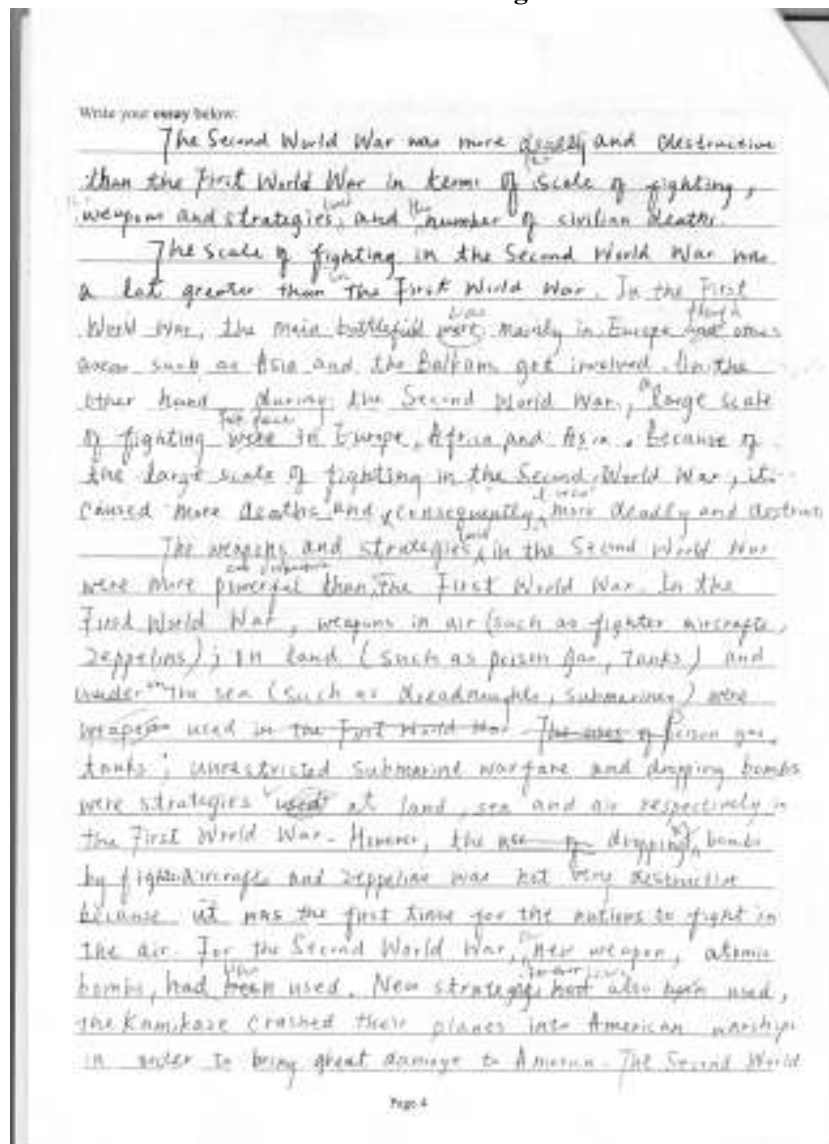 Write your essay below:
The Second World War was more deadly and destructive
than the First World War in terms of scale of fighting,
weapons and strategies used, and the number of civilian deaths.
The scale of fighting in the Second World War was
a lot greater than in the First World War. In the First
World War, the main battlefield was were mainly in Europe though and other
areas such as Asia and the Balkans got involved. On the
other hand, during the Second World War, a large scale
of fighting took place were in Europe, Africa and Asia. Because of
the large scale of fighting in the Second World War, it
caused more deaths and consequently, more deadly and destructive
The weapons and strategies used in the Second World War
were more powerful than the First World War. In the
First World War, weapons in air (such as fighter aircrafts,
Zeppelins); on land (such as poison gas, tanks) and
under the sea (such as dreadnoughts, submarines) were
weapons used in the First World War The uses of Poison gas,
tanks; unrestricted submarine warfare and dropping bombs
were strategies used at land, sea and air respectively in
the First World War. However, the use of dropping of bombs
by fight aircrafts and zeppelins was not very destructive
because it was the first time for the nations to fight in
the air. For the Second World War, new weapon, atomic
bombs, had been used. New strategies had also been used,
the Kamikaze crashed their planes into American warships
in order to bring great damage to America. The Second World
Page 4